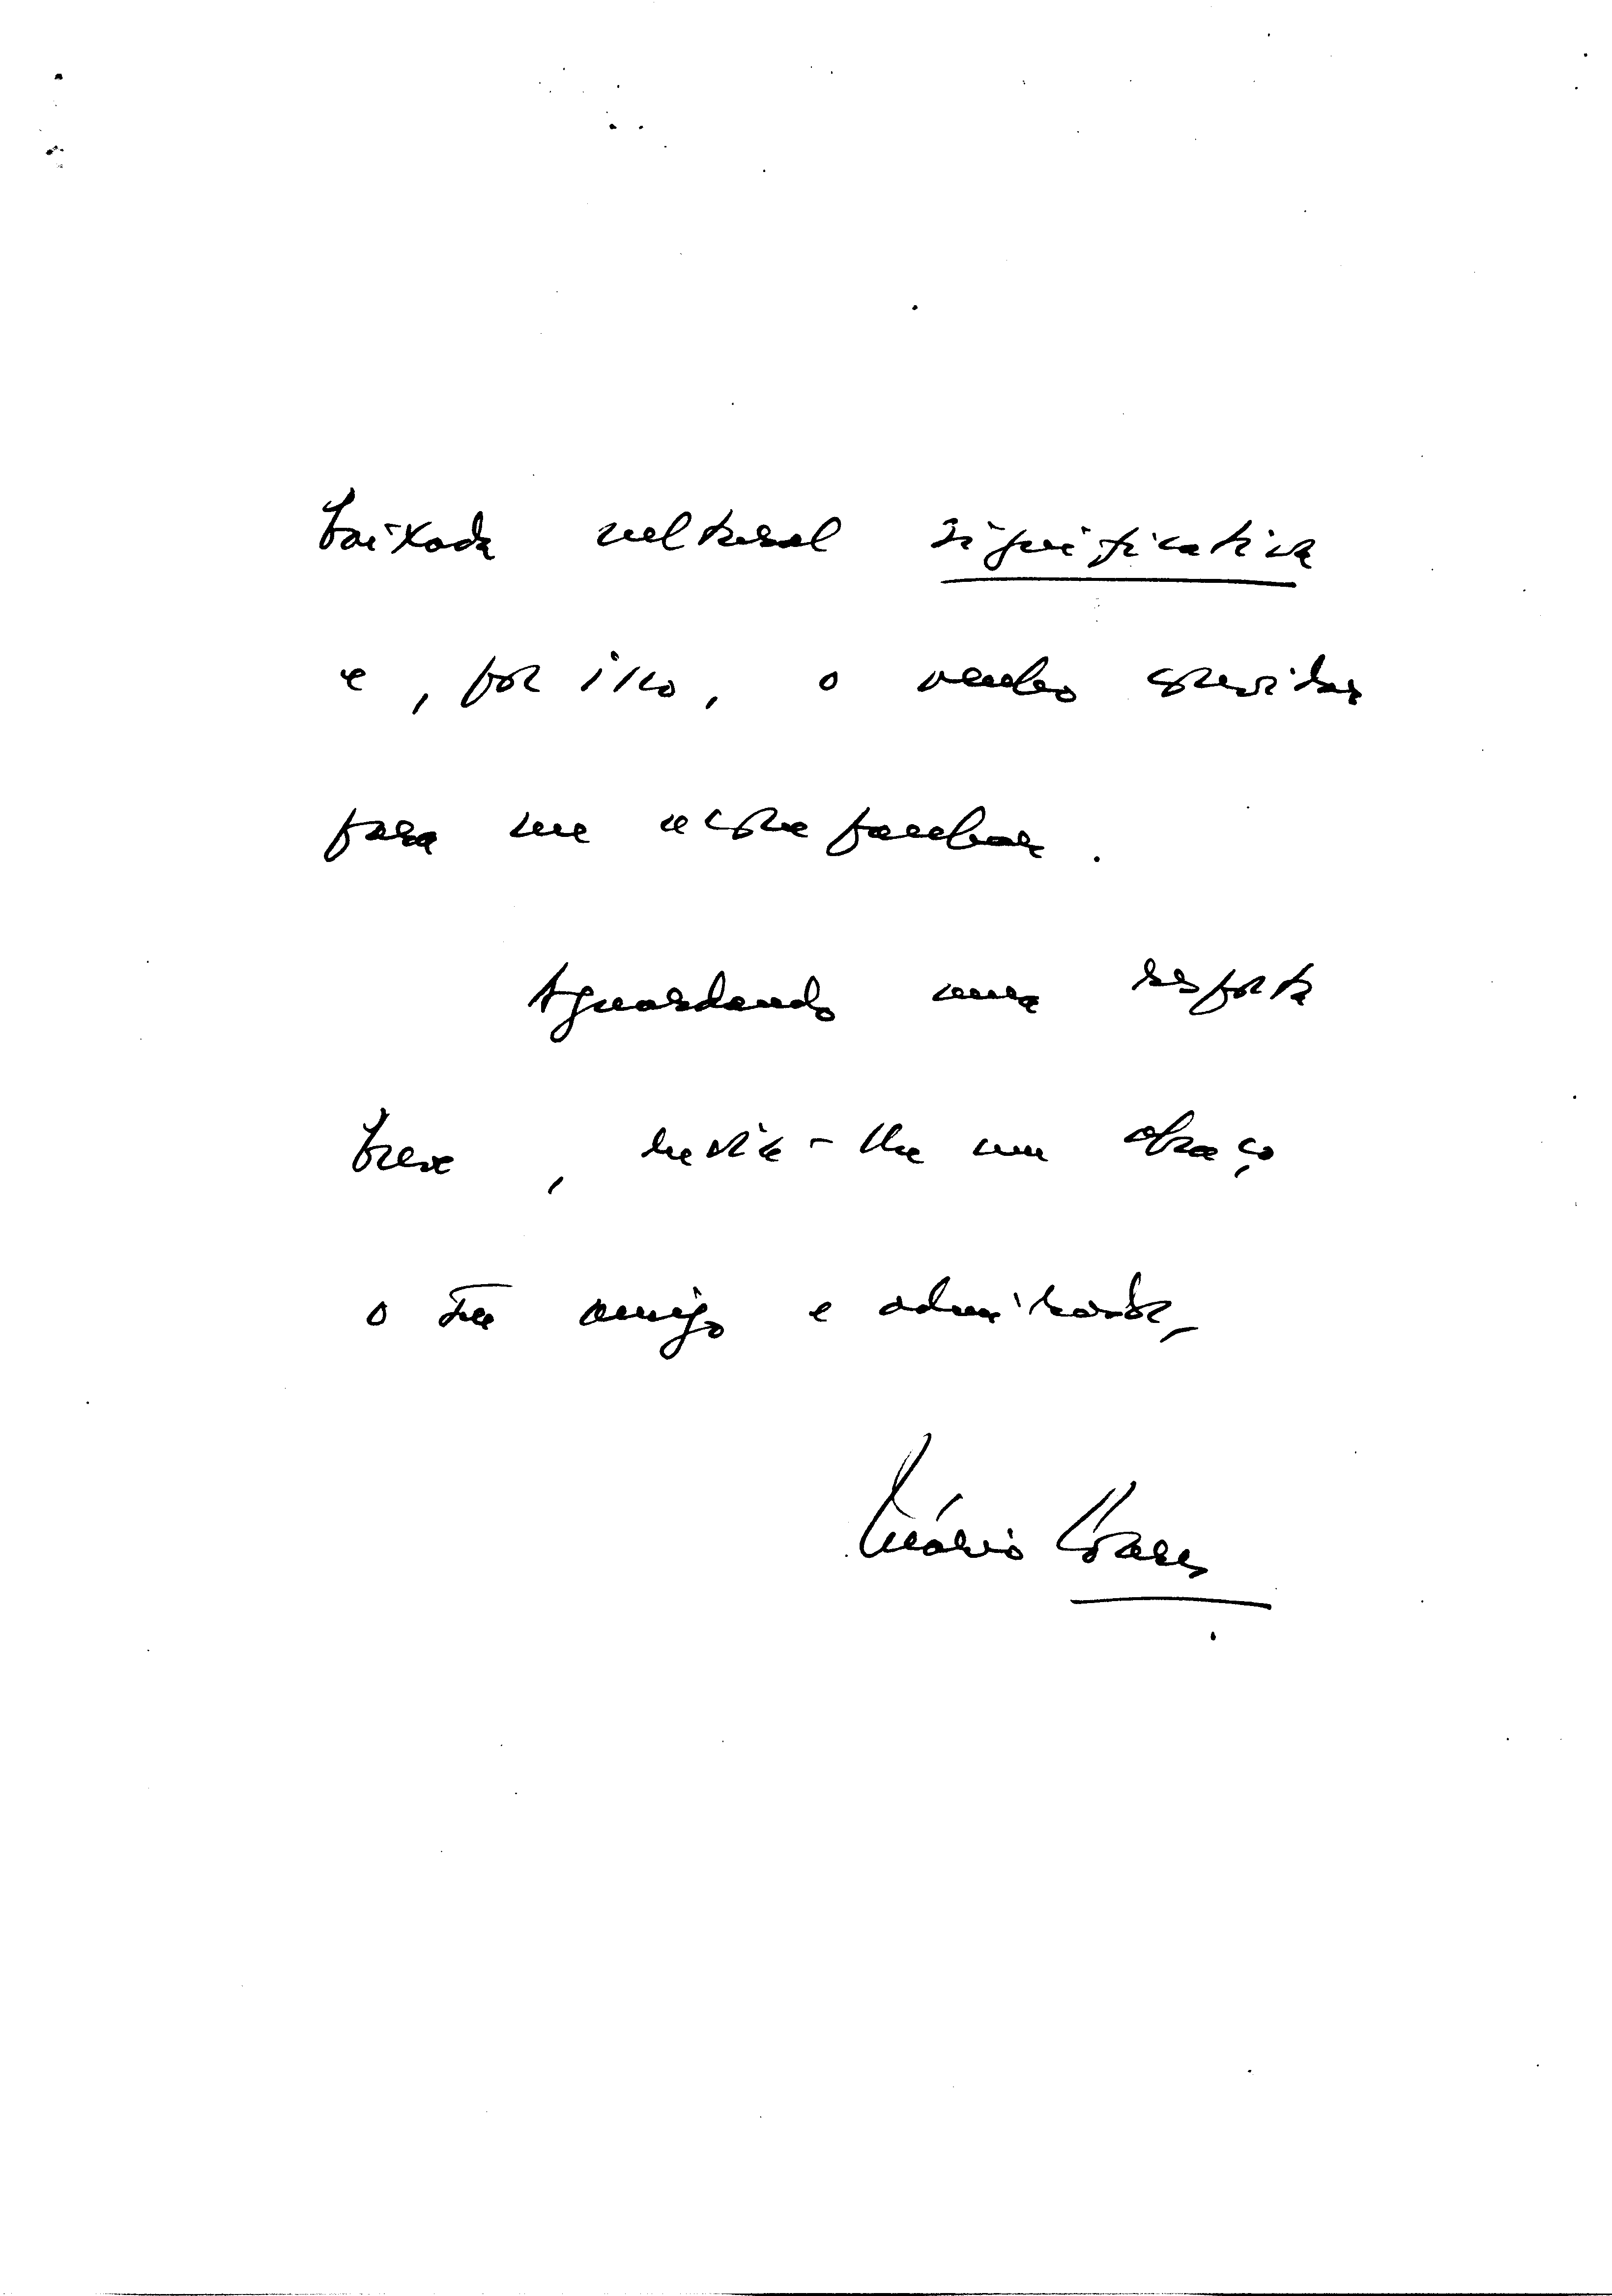 baixada cultural significativa
e, por isso, o venho convidar
para me acompanhar.
Aguardando uma resposta
breve, envia-lhe um abraço
o seu amigo e admirador,
Mário Soares